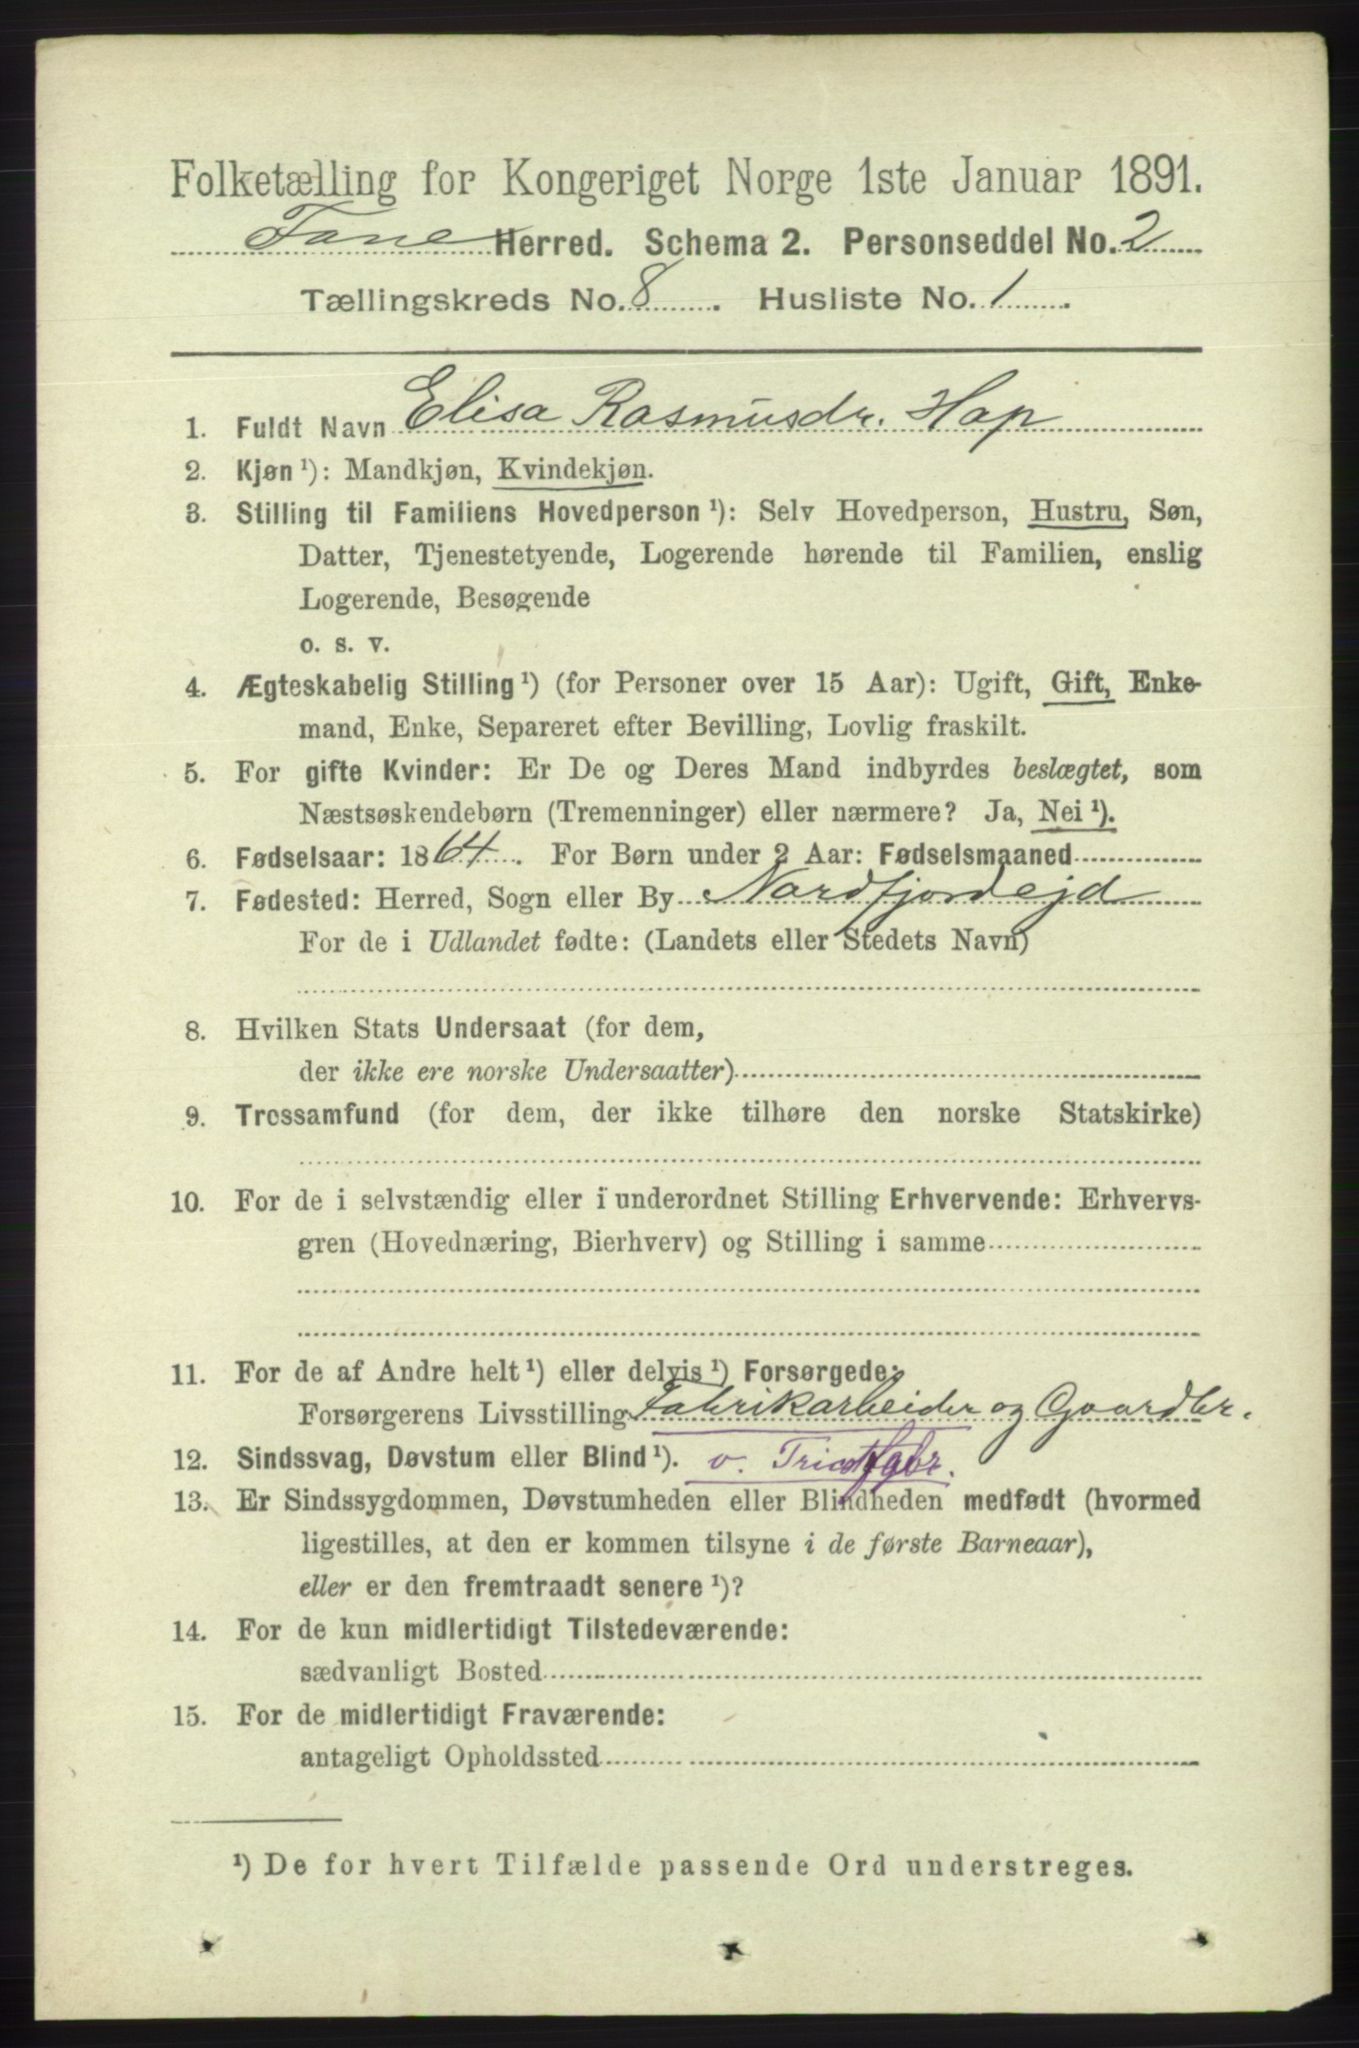 Folketælling for Kongeriget Norge 1ste Januar 1891.
Fane Herred. Schema 2. Personseddel No. 2
Tællingskreds No. 8. Husliste No. 1.
1. Fuldt Navn Elisa Rasmusdr. Hop
2. Kjøn ¹): Mandkjøn, Kvindekjøn.
3. Stilling til Familiens Hovedperson ¹): Selv Hovedperson, Hustru, Søn,
Datter, Tjenestetyende, Logerende hørende til Familien, enslig
Logerende, Besøgende
o. s. v.
4. Ægteskabelig Stilling ¹) (for Personer over 15 Aar): Ugift, Gift, Enke-
mand, Enke, Separeret efter Bevilling, Lovlig fraskilt.
5. For gifte Kvinder: Er De og Deres Mand indbyrdes beslægtet, som
Næstsøskendebørn (Tremenninger) eller nærmere? Ja, Nei ¹).
6. Fødselsaar: 1864. For Børn under 2 Aar: Fødselsmaaned
7. Fødested: Herred, Sogn eller By Nordfjordejd
For de i Udlandet fødte: (Landets eller Stedets Navn)
8. Hvilken Stats Undersaat (for dem,
der ikke ere norske Undersaatter)
9. Trossamfund (for dem, der ikke tilhøre den norske Statskirke)
10. For de i selvstændig eller i underordnet Stilling Erhvervende: Erhvervs-
gren (Hovednæring, Bierhverv) og Stilling i samme
11. For de af Andre helt ¹) eller delvis ¹) Forsørgede:
Forsørgerens Livsstilling Fabrikarbeider og Gaardbr.
12. Sindssvag, Døvstum eller Blind ¹). v. Tricotfabr.
13. Er Sindssygdommen, Døvstumheden eller Blindheden medfødt (hvormed
ligestilles, at den er kommen tilsyne i de første Barneaar),
eller er den fremtraadt senere ¹)?
14. For de kun midlertidigt Tilstedeværende:
sædvanligt Bosted
15. For de midlertidigt Fraværende:
antageligt Opholdssted
¹) De for hvert Tilfælde passende Ord understreges.